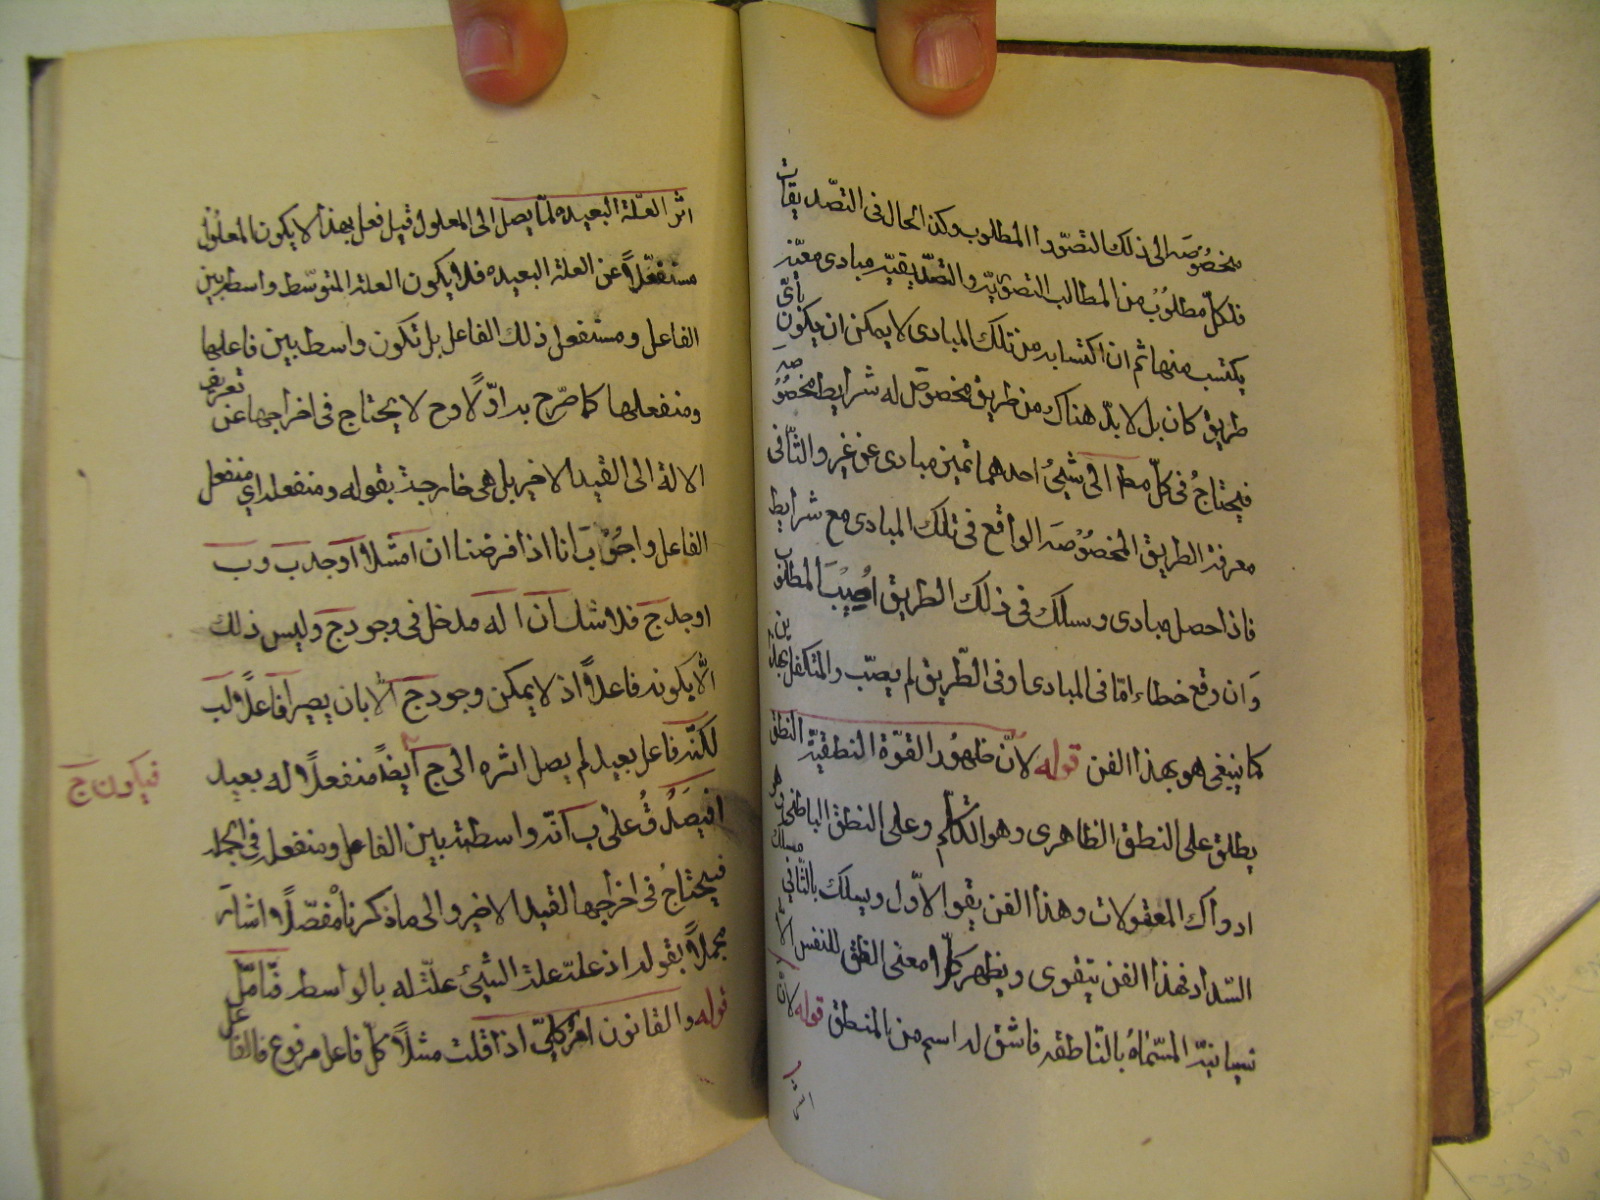 مخصوصة الى ذلك التصور المطلوب وكذا الحال فى التصديقات
فلكل مطلوب من المطالب التصورية والتصديقية مبادى معينة
يكتسب منها ثم ان اكتسابه من تلك المبادى لا يمكن ان يكون بأىّ
طريق كان بل لا بدّ هناك من طريق مخصوص له شرايط مخصوصة
فيحتاج فى كلّ مط الى شيئ احدهما تميز مبادى عن غير والثانى
معرفة الطريق المخصوصة الواقع فى تلك المبادى مع شرايط
فاذا حصل مبادى وسلك فى ذلك الطريق اصيب المطلوب
وان وقع خطاء امّا فى المبادى او فى الطّريق لم يصب والمتكفل بهذين
كما ينبغى هو بهذا الفن قوله لانّ ظهور القوّة النطقية النطق
يطلق على النطق الظاهرى وهو التكلّم وعلى النطق الباطنى وهو
ادراك المعقولات وهذا الفن يقو الاوّل ويسلك بالثّانى مسلك
السّداد فهذا الفن يتقوى ويظهر كلا معنى النطق للنفس الا
نسانيّة المسّماة بالنّاطقه فاشق له اسم من المنطق قوله لانّ
اثر
اثر العلّة البعيده لمّا يصل الى المعلول قيل فعل بهذا لا يكون المعلول
مستفعلاً عن العلة البعيده فلا يكون العلة المتوسّط واسطة بين
الفاعل ومستفعل ذلك الفاعل بل تكون واسطة بين فاعلها
ومنفعلها كما صرّح به اوّلاً وح لا يحتاج فى اخراجها عن تعريف
الالة الى القيد الاخير بل هى خارجة بقوله ومنفعله اى منفعل
الفاعل واجوب بانا اذا فرضنا ان ا مثلا اوجد ب وب
اوجد ج فلا شك ان ا له مدخل فى وجود ج وليس ذلك
الّا يكونه فاعلاً اذ لا يمكن وجود ج الّا بان يصير ا فاعلاً لب
لكنّه فاعل بعيد لم يصل اثره الى ج ايضاً منفعلاً له بعيد
فيكون ج
فيصدق على ب انّه واسطة بين الفاعل ومنفعله فى الجملة
فيحتاج فى اخراجها القيد الاخير والى ما ذكرنا مفصّلاً اشار
مجملاً بقوله اذ علّة علة الشيئ علّة له بالواسطة فتأمّل
قوله والقانون امر كلىّ اذا قلت مثلاً كلّ فاعل مرفوع فالفاعل